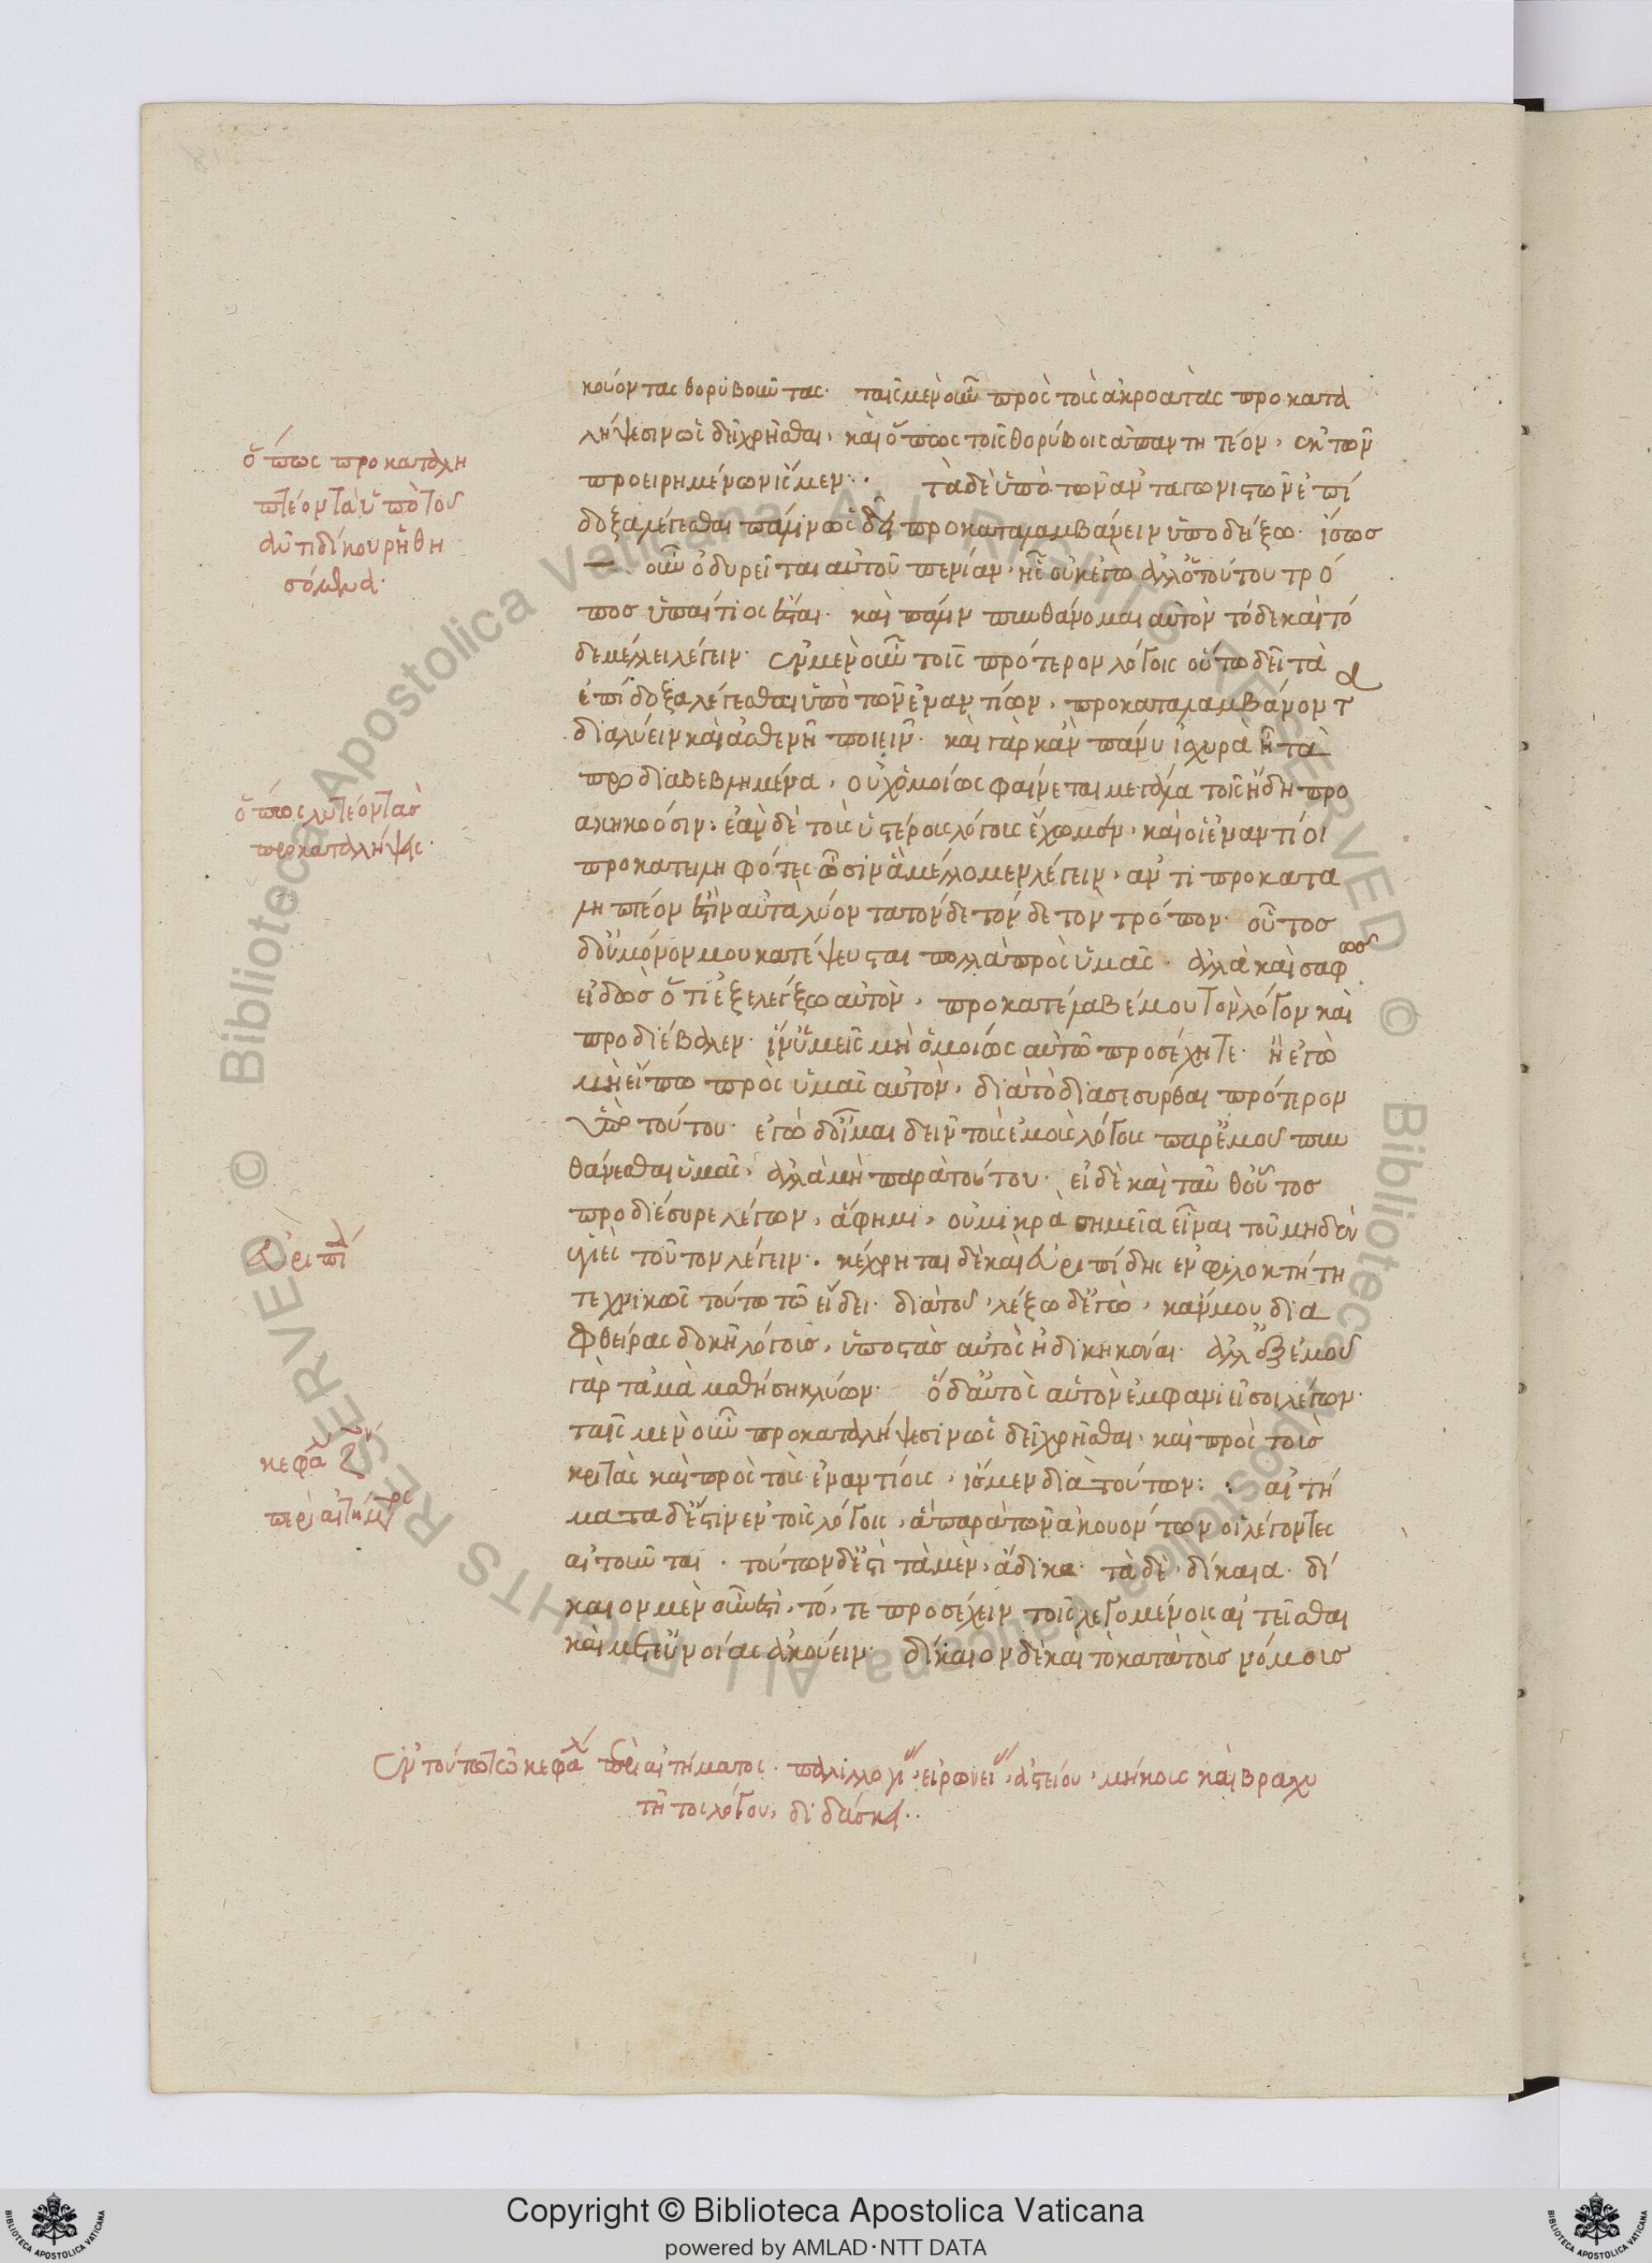 κούοντας θορυβοῦντας. ταῖς μὲν οὖν πρὸς τοὺς ἀκροατὰς προκατα
λήψεσιν ὡς δεῖ χρῆσθαι, καὶ ὅπως τοῖς θορύβοις ἀπαντητέον, ἐκ τῶν
προειρημένων ἴσμεν. τὰ δὲ ὑπὸ τῶν ἀνταγωνιστῶν ἐπί
δοξα λέγεσθαι πάλιν ὡς δεῖ προκαταλαμβάνειν ὑποδείξω. ἴσως
οὖν ὀδυρεῖται αὐτοῦ πενίαν, ἧς οὐκ ἐγὼ ἀλλ' ὁ τούτου τρό
πος ὑπαίτιός ἐσται. καὶ πάλιν πυνθάνομαι αὐτὸν τόδε καὶ τό
δε μέλλει λέγειν. ἐν μὲν οὖν τοῖς πρότερον λόγοις οὕτω δεῖ τὰ
ἐπίδοξα λέγεσθαι ὑπὸ τῶν ἐναντίων, προκαταλαμβάνοντα
διαλύειν καὶ ἀσθενῆ ποιεῖν. καὶ γὰρ κἂν πάνυ ἰσχυρὰ ᾖ τὰ
προδιαβεβλημένα, οὐχ ὁμοίως φαίνεται μεγάλα τοῖς ἤδη προ
ακηκοόσιν. ἐὰν δὲ τοὺς ὑστέρους λόγους ἔχωμεν, καὶ οἱ ἐναντίοι
προκατειληφότες ὦσιν ἃ μέλλομεν λέγειν, ἀντιπροκατα
ληπτέον ἐστὶν αὐτὰ λύοντα τόνδε τόνδε τὸν τρόπον. οὗτος
δ' οὐ μόνον μου κατέψευσται πολλὰ πρὸς ὑμᾶς. ἀλλὰ καὶ σαφῶς
εἰδὼς ὅτι ἐξελέγξω αὐτὸν, προκατέλαβέ μου τὸν λόγον καὶ
προδιέβαλεν. ἵν' ὑμεῖς μὴ ὁμοίως αὐτῷ προσέχητε. ἢ ἐγὼ
μὴ εἴπω πρὸς ὑμᾶς αὐτὸν, διὰ τὸ διασεσύρθαι πρότερον
ὑπὸ τούτου. ἐγὼ δ' οἶμαι δεῖν τοὺς ἐμοὺς λόγους παρ' ἐμοῦ πυν
θάνεσθαι ὑμᾶς, ἀλλὰ μὴ παρὰ τούτου. εἰ δὲ καὶ ταῦθ' οὗτος
προδιέσυρε λέγων, ἅ φημι, οὐ μικρὰ σημεῖα εἶναι τοῦ μηδὲν
ὑγιὲς τοῦτον λέγειν. κέχρηται δὲ καὶ Εὐριπίδης ἐν φιλοκτήτῃ
τεχνικῶς τούτῳ τῷ εἴδει. διὰ τοῦ, λέξω δ' ἐγὼ, κἄν μου δια
φθείρας δοκῇ λόγοις, ὑποστὰς αὐτὸς ἠδικηκέναι. ἀλλ' ἐξ ἐμοῦ
γὰρ τἀμὰ μαθήσῃ κλύων. ὁ δ' αὐτὸς αὑτὸν ἐμφανιεῖ σοι λέγων.
ταῖς μὲν οὖν προκαταλήψεσιν ὡς δεῖ χρῆσθαι. καὶ πρὸς τοὺς
κριτὰς καὶ πρὸς τοὺς ἐναντίους, ἴσμεν διὰ τούτων: αἰτή
ματα δ' ἔστιν ἐν τοῖς λόγοις, ἃ παρὰ τῶν ἀκουόντων οἱ λέγοντες
αἰτοῦνται. τούτων δ' ἐστὶ τὰ μὲν, ἄδικα. τὰ δὲ, δίκαια. δί
καιον μὲν οὖν ἐστὶ, τό, τε προσέχειν τοῖς λεγομένοις αἰτεῖσθαι
καὶ μετ' εὐνοίας ἀκούειν. δίκαιον δὲ καὶ τὸ κατὰ τοὺς νόμους
ὅπως προκαταλη
πτέον τὰ ὑπὸ τοῦ
ἀντιδίκου ῥηθη
σόμενα.
ὅπως λυτέον τὰς
προκαταλήψεις.
Εὐριπί
κεφάλ
περὶ αἰτήματος
Ἐν τούτῳ τῷ κεφαλ περὶ αἰτήματος. παλιλλογί, εἰρωνεί, ἀστείου, μήκους καὶ βραχυ
τῆτος λόγου, διδάσκει.
Copyright © Biblioteca Apostolica Vaticana
powered by AMLAD·NTT DATA